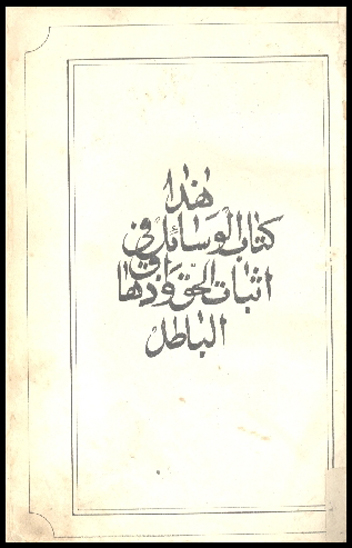 هذا
كتاب الوسائل في
اثبات الحق و ذهاق
الباطل